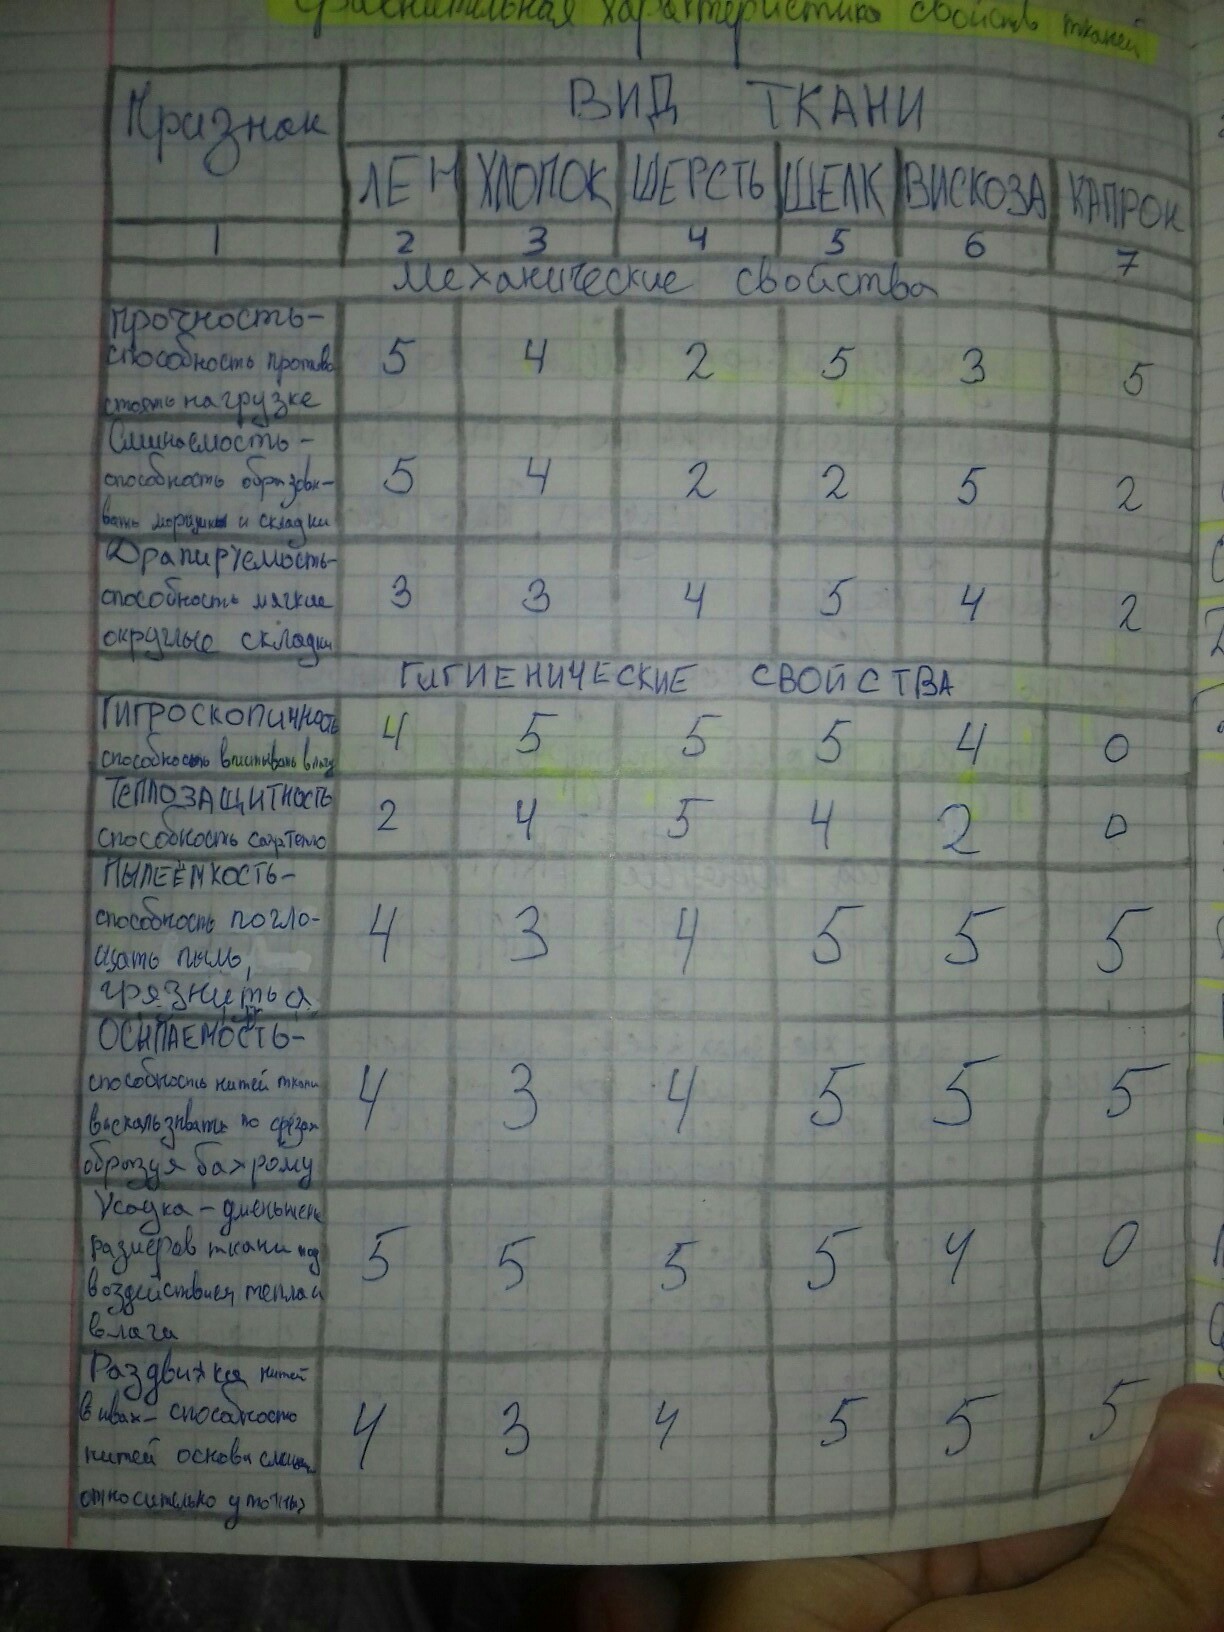 Сравнительная характеристика свойств тканей
Признак
ВИД ТКАНИ
ЛЕН ХЛОПОК ШЕРСТЬ ШЕЛК ВИСКОЗА КАПРОН
1 2 3 4 5 6 7
Механические свойства
Прочность-
способность противо
стоять нагрузке
5 4 2 5 3 5
Сминаемость -
способность образовы-
вать морщины и складки
5 4 2 2 5 2
Драпируемость-
способность мягкие
округлые складки
3 3 4 5 4 2
ГИГИЕНИЧЕСКИЕ СВОЙСТВА
ГИГРОСКОПИЧНОСТЬ
способность впитывать влагу
4 5 5 5 4 0
ТЕПЛОЗАЩИТНОСТЬ
способность сохр тепло
2 4 5 4 2 0
ПЫЛЕЁМКОСТЬ-
способность погло-
щать пыль,
грязниться
4 3 4 5 5 5
ОСЫПАЕМОСТЬ-
способность нитей ткани
выскальзывать по срезам
образуя бахрому
4 3 4 5 5 5
Усадка - уменьшен
размеров ткани под
воздействием тепла и
влага
5 5 5 5 4 0
Раздвижка нитей
в швах- способность
нитей основы
относительно уточных
4 3 4 5 5 5